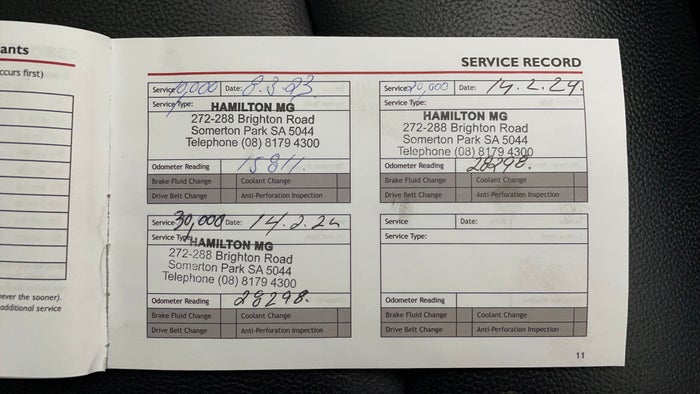 ants
ccurs first)
ever the sooner).
additional service
SERVICE RECORD
Service 10,000 Date: 8.3.23
Service Type:
HAMILTON MG
272-288 Brighton Road
Somerton Park SA 5044
Telephone (08) 8179 4300
Odometer Reading 15811.
Brake Fluid Change Coolant Change
Drive Belt Change Anti-Perforation Inspection
Service 20,000 Date: 14.2.24.
Service Type:
HAMILTON MG
272-288 Brighton Road
Somerton Park SA 5044
Telephone (08) 8179 4300
Odometer Reading 28298.
Brake Fluid Change Coolant Change
Drive Belt Change Anti-Perforation Inspection
Service 30,000 Date: 14.2.24
Service Type
HAMILTON MG
272-288 Brighton Road
Somerton Park SA 5044
Telephone (08) 8179 4300
Odometer Reading 28298.
Brake Fluid Change Coolant Change
Drive Belt Change Anti-Perforation Inspection
Service Date:
Service Type:
Odometer Reading
Brake Fluid Change Coolant Change
Drive Belt Change Anti-Perforation Inspection
11